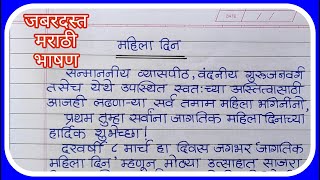 जबरदस्त
मराठी
भाषण
महिला दिन
सन्माननीय व्यासपीठ, वंदनीय गुरुजनवर्ग
तसेच येथे उपस्थित स्वतःच्या अस्तित्वासाठी
आजही लढणाऱ्या सर्व तमाम महिला भगिनींनो,
प्रथम तुम्हा सर्वांना जागतिक महिला दिनाच्या
हार्दिक शुभेच्छा!
दरवर्षी ८ मार्च हा दिवस जगभर 'जागतिक
महिला दिन' म्हणून मोठ्या उत्साहात साजरा